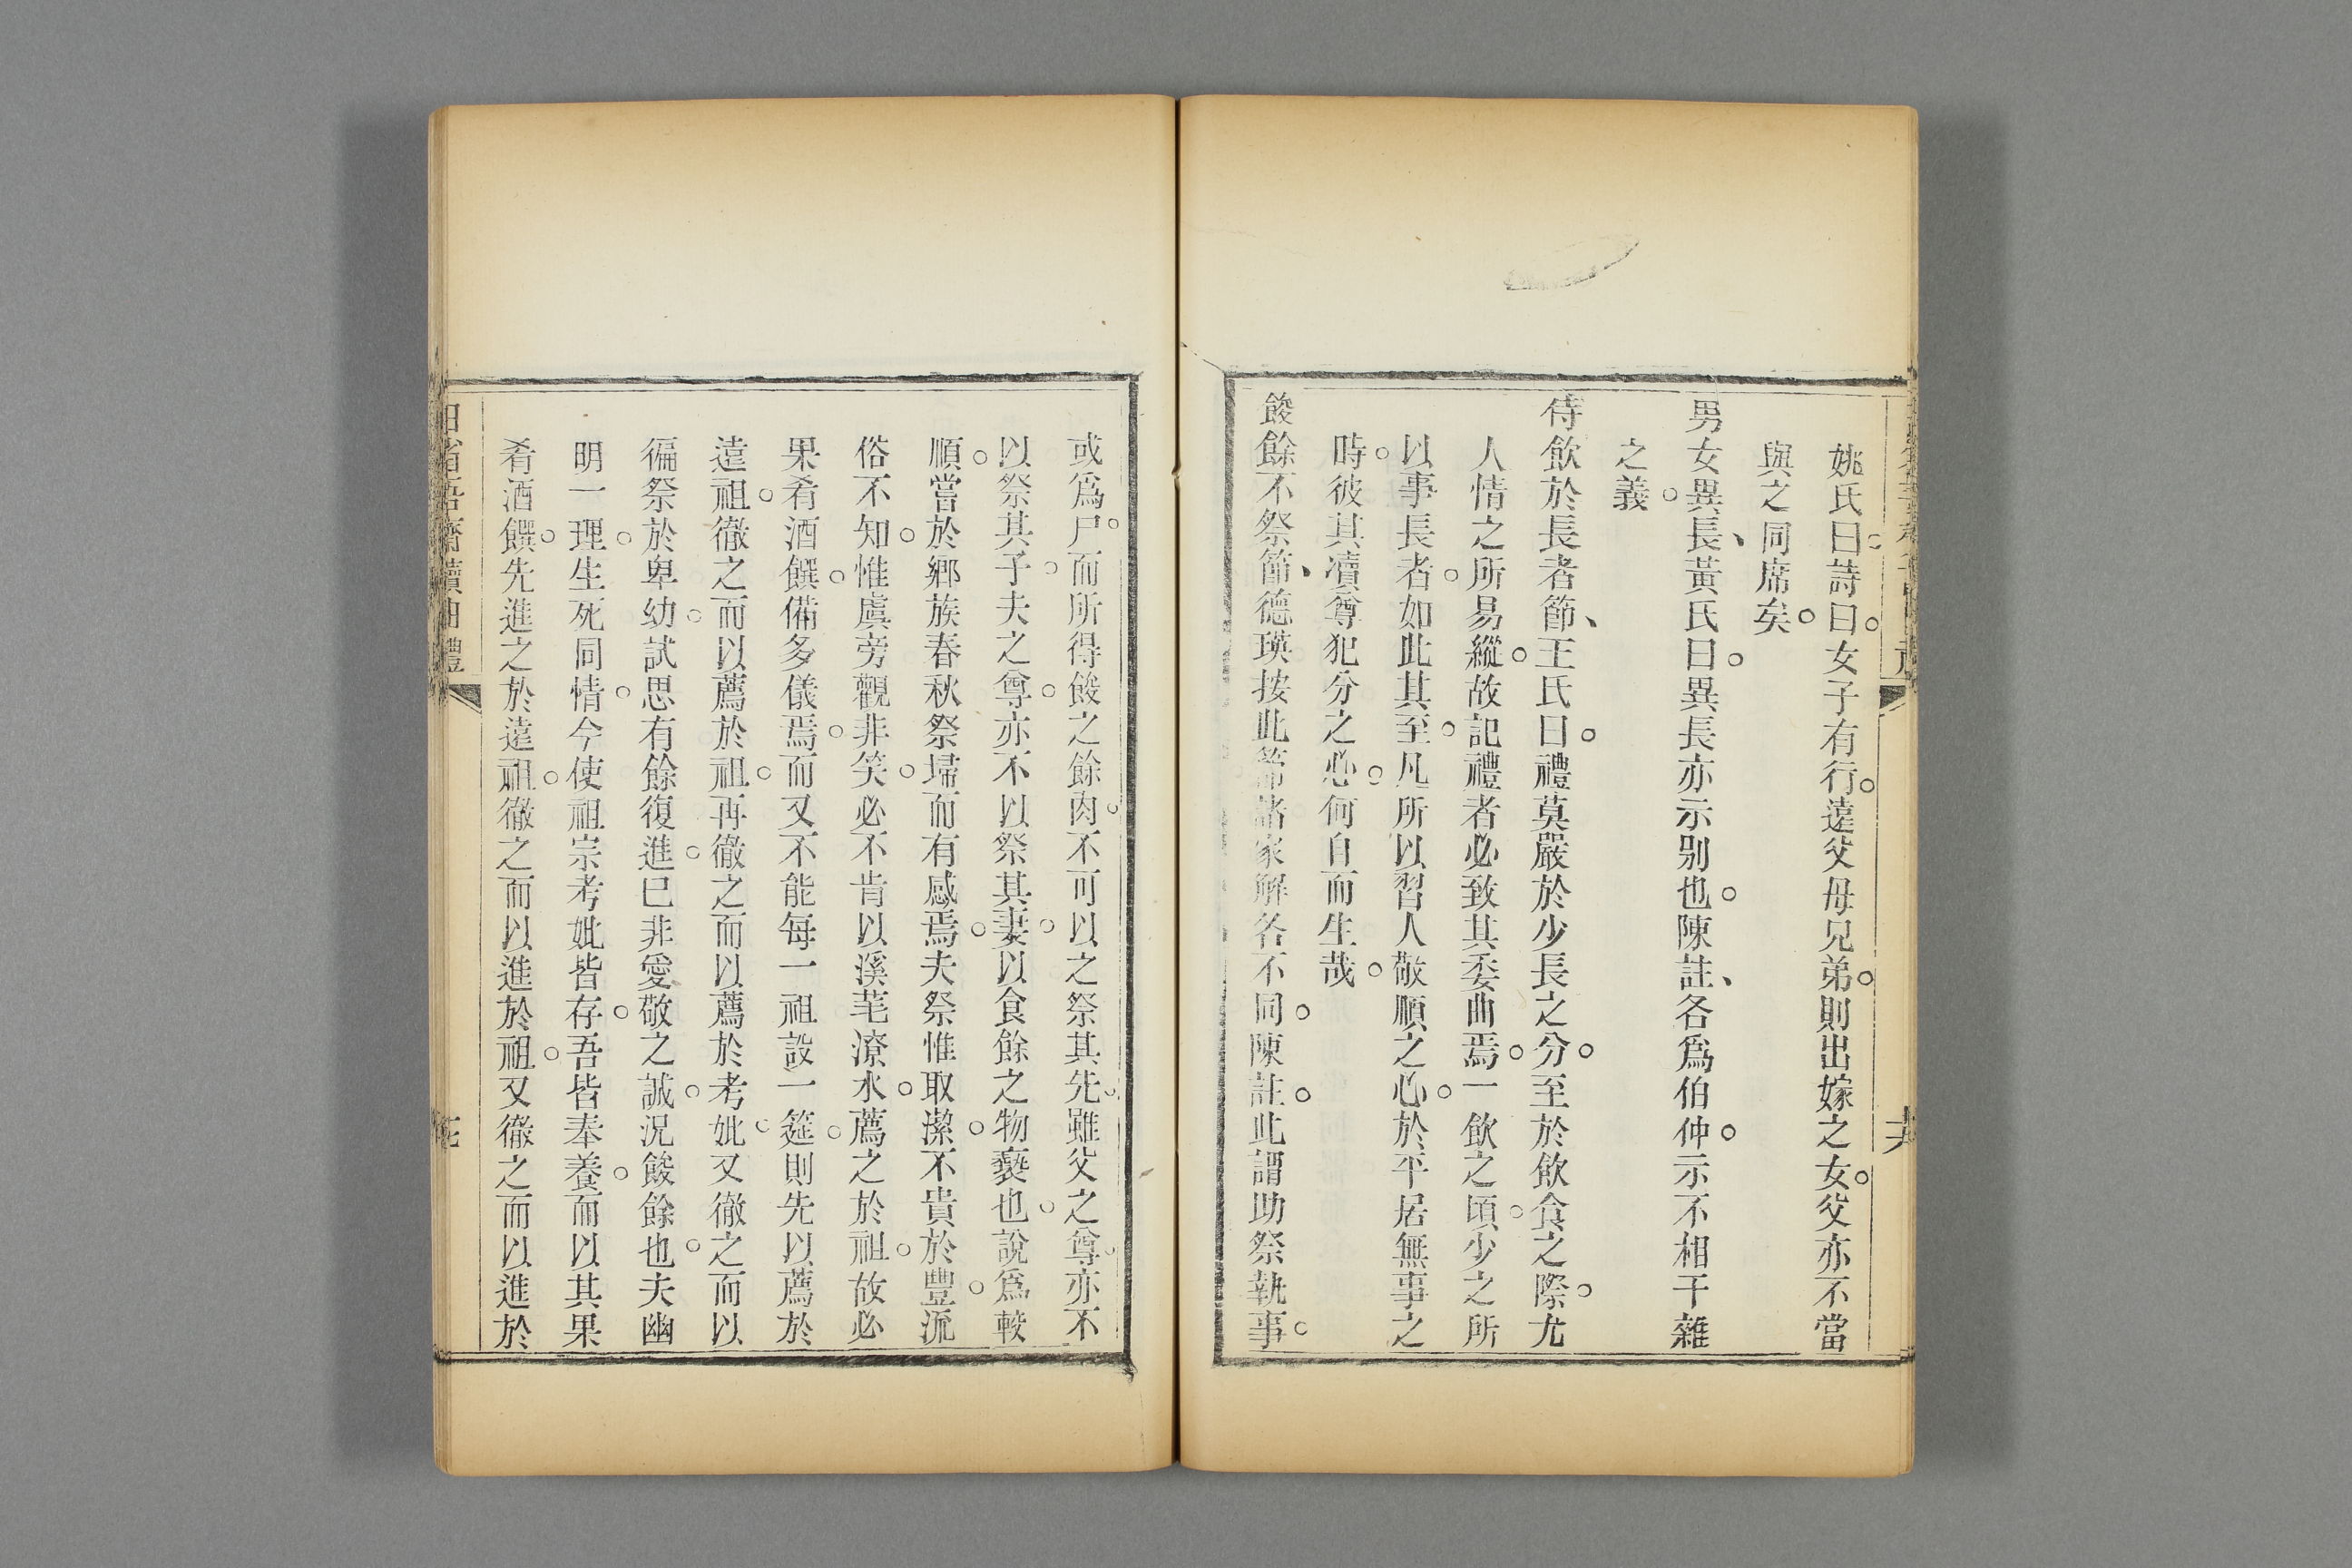 姚氏曰詩曰女子有行遠父母兄弟則出嫁之女父亦不當
與之同席矣
男女異長黃氏曰異長亦示别也陳註各爲伯仲示不相干雜
之義
侍飲於長者節王氏曰禮莫嚴於少長之分至於飲食之際尤
人情之所易縱故記禮者必致其委曲焉一飲之頃少之所
以事長者如此其至凡所以習人敬順之心於平居無事之
時彼其凟尊犯分之心何自而生哉
餕餘不祭節德瑛按此節諸家解各不同陳註此謂助祭執事
或爲尸而所得餕之餘肉不可以之祭其先雖父之尊亦不
以祭其子夫之尊亦不以祭其妻以食餘之物褻也說爲較
順嘗於鄉族春秋祭埽而有感焉夫祭惟取潔不貴於豐流
俗不知惟虞旁觀非笑必不肯以溪芼潦水薦之於祖故必
果肴酒饌備多儀焉而又不能每一祖設一筵則先以薦於
遠祖徹之而以薦於祖再徹之而以薦於考妣又徹之而以
徧祭於卑幼試思有餘復進已非愛敬之誠況餕餘也夫幽
明一理生死同情今使祖宗考妣皆存吾皆奉養而以其果
肴酒饌先進之於遠祖徹之而以進於祖又徹之而以進於
日省吾齋讀曲禮